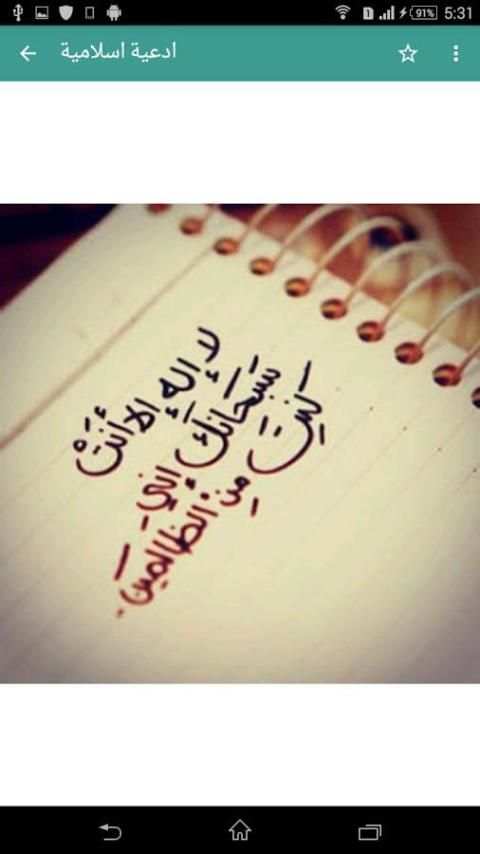 5:31
91%
ادعية اسلامية
لا إله إلا أنت
سبحانك إني
كنت من الظالمين